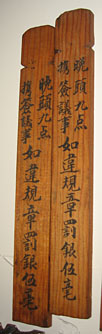 晚頭九点
携簽議事
如違規章罰銀伍毫
晚頭九点
携簽議事
如違規章罰銀伍毫